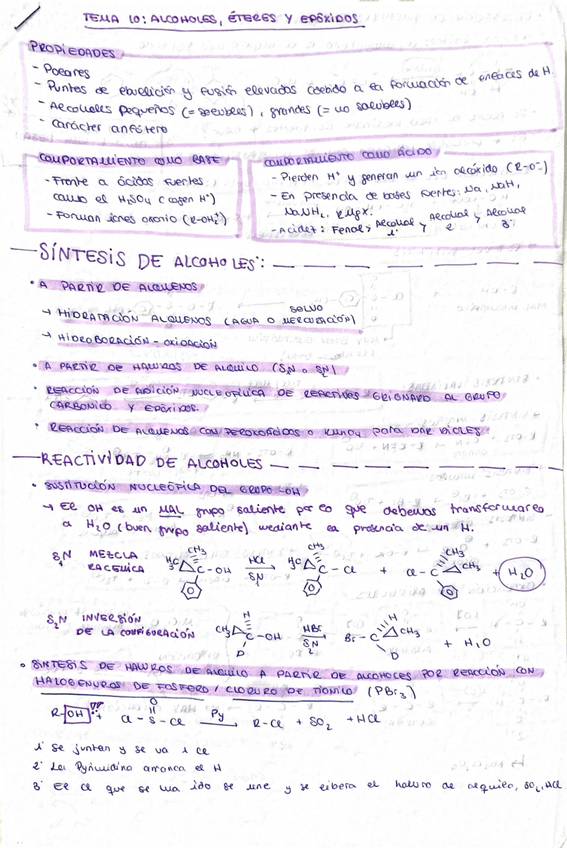 TEMA 10: ALCOHOLES, ÉTERES Y EPÓXIDOS
PROPIEDADES
- Polares
- Puntos de ebullición y fusión elevados debido a la formación de enlaces de H.
- Alcoholes pequeños (= solubles), grandes (= no solubles)
- Carácter anfótero
COMPORTAMIENTO COMO BASE
- Frente a ácidos fuertes
como el H2SO4 (cogen H+)
- Forman iones oxonio (R-OH2+)
COMPORTAMIENTO COMO ÁCIDO
- Pierden H+ y generan un ion alcóxido (R-O-)
- En presencia de bases fuertes: Na, NaH,
NaNH2, RMgX.
- Acidez: Fenol > Alcohol 1º > Alcohol 2º > Alcohol 3º
SÍNTESIS DE ALCOHOLES:
• A PARTIR DE ALQUENOS
→ HIDRATACIÓN ALQUENOS (AGUA O MERCURACIÓN)
SOLVO
→ HIDROBORACIÓN - OXIDACIÓN
• A PARTIR DE HALUROS DE ALQUILO (SN1 o SN2)
• REACCIÓN DE ADICIÓN NUCLEOFÍLICA DE REACTIVOS GRIGNARD AL GRUPO
CARBONILO Y EPÓXIDOS.
• REACCIÓN DE ALQUENOS CON PEROXOÁCIDOS O KMnO4 para dar DIOLES.
REACTIVIDAD DE ALCOHOLES
• SUSTITUCIÓN NUCLEÓFILA DEL GRUPO -OH
→ El OH es un MAL grupo saliente por lo que debemos transformarlo
a H2O (buen grupo saliente) mediante la presencia de un H.
SN1 MEZCLA RACÉMICA H3C CH3 C-OH HCl SN1 H3C CH3 C-Cl + Cl-C CH3 CH3 + H2O
SN2 INVERSIÓN DE LA CONFIGURACIÓN CH3 H C-OH D HBr SN2 Br-C H CH3 D + H2O
• SÍNTESIS DE HALUROS DE ALQUILO A PARTIR DE ALCOHOLES POR REACCIÓN CON
HALOGENUROS DE FÓSFORO / CLORURO DE TIONILO (PBr3)
R-OH + Cl-S-Cl Py R-Cl + SO2 + HCl
O
1º Se juntan y se va 1 Cl
2º La Pyrimidina arranca el H
3º El Cl que se ha ido se une y se libera el haluro de alquilo, SO2, HCl